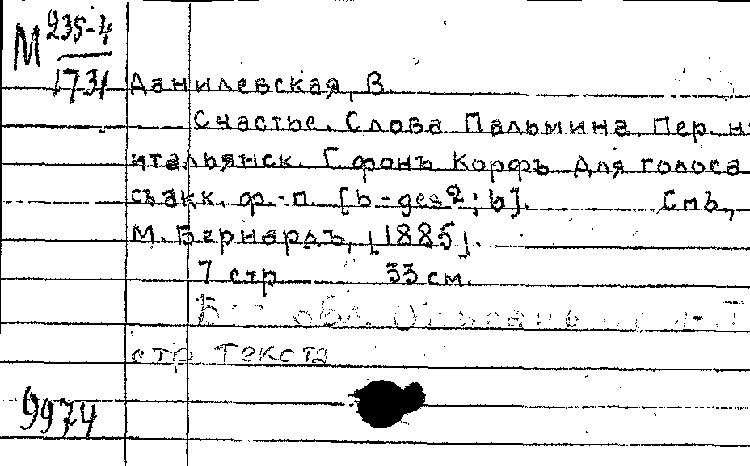 М 235-4
1731
Данилевская, В.
Счастье. Слова Пальмина. Пер. н
итальянск. Г. фонъ Корфъ. Для голоса
съ акк. ф.-п. [b-des²; b]. Спб.,
М. Бернардъ, [1885].
7 стр 33 см.
Б обл.
стр. текста
9974